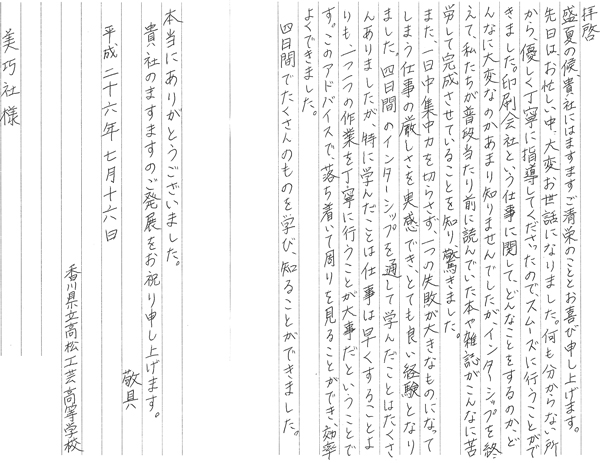 拝啓
盛夏の候、貴社にはますますご清栄のこととお喜び申し上げます。
先日はお忙しい中、大変お世話になりました。何も分からない所
から、優しく丁寧に指導してくださったのでスムーズに行うことがで
きました。印刷会社という仕事に関して、どんなことをするのか、ど
んなに大変なのかあまり知りませんでしたが、インターンシップを終
えて、私たちが普段当たり前に読んでいた本や雑誌がこんなに苦
労して完成させていることを知り、驚きました。
また、一日中集中力を切らさず、一つの失敗が大きなものになって
しまう仕事の厳しさを実感でき、とても良い経験となり
ました。四日間のインターンシップを通して学んだことはたくさ
んありましたが、特に学んだことは仕事は早くすることよ
りも、一つ一つの作業を丁寧に行うことが大事だということで
す。このアドバイスで、落ち着いて周りを見ることができ効率
よくできました。
四日間でたくさんのものを学び、知ることができました。
本当にありがとうございました。
貴社のますますのご発展をお祝り申し上げます。
敬具
平成二十六年 七月十六日
香川県立高松工芸高等学校
美巧社様